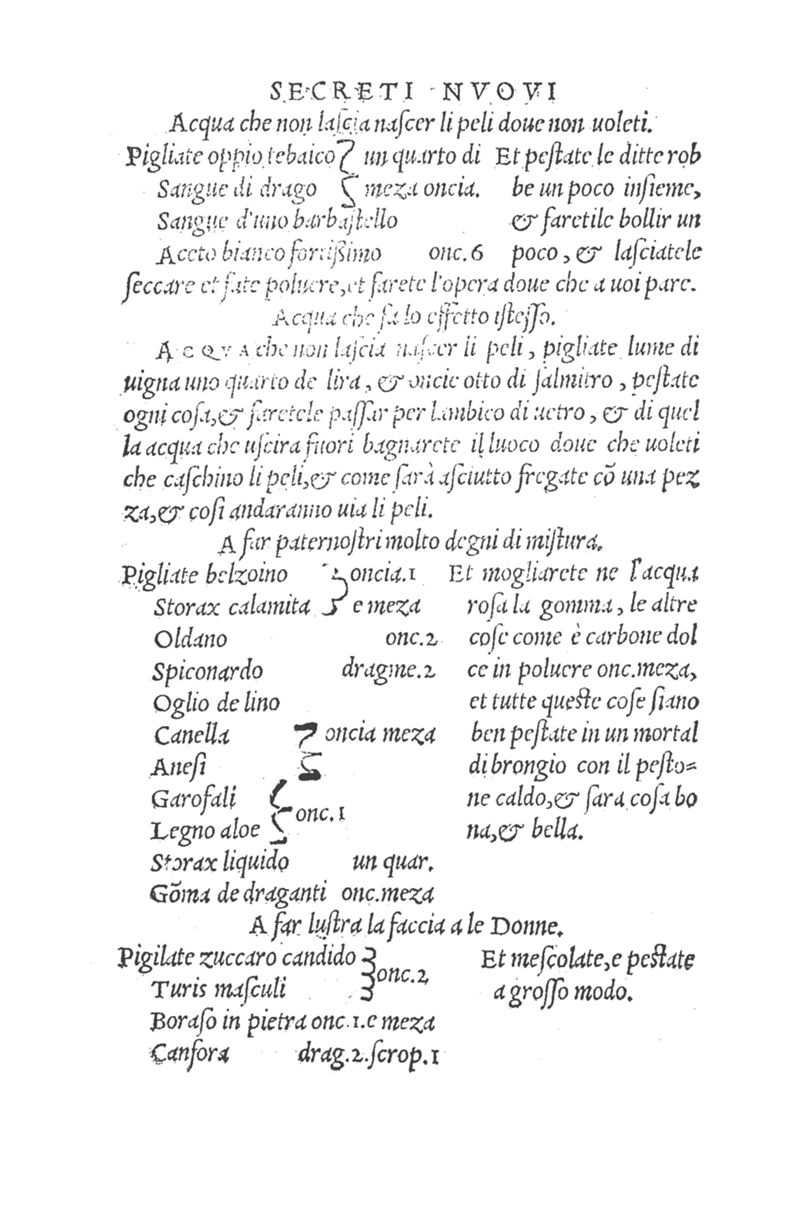 SECRETI NVOVI
Acqua che non laſcia naſcer li peli doue non uoleti.
Pigliate oppio tebaico un quarto di
Sangue di drago meza oncia.
Sangue d'uno barbaſtello
Aceto bianco fortißimo onc.6
Et peſtate le ditte rob
be un poco inſieme,
& faretile bollir un
poco, & laſciatele
ſeccare et fate poluere, et farete l'opera doue che a uoi pare.
Acqua che fa lo effetto iſteſſo.
ACQVA che non laſcia naſcer li peli, pigliate lume di
uigna uno quarto de lira, & oncie otto di ſalnitro, peſtate
ogni coſa, & faretele paſſar per lambico di uetro, & di quel
la acqua che uſcira fuori bagnarete il luoco doue che uoleti
che caſchino li peli, & come ſarà aſciutto fregate cõ una pez
za, & coſi andaranno uia li peli.
A far paternoſtri molto degni di miſtura.
Pigliate belzoino oncia.1
Storax calamita e meza
Oldano onc.2
Spiconardo dragme.2
Oglio de lino
Canella oncia meza
Aneſi
Garofali
onc.1
Legno aloe
Storax liquido un quar.
Gõma de draganti onc.meza
Et mogliarete ne l'acqua
roſa la gomma, le altre
coſe come è carbone dol
ce in poluere onc.meza,
et tutte queſte coſe ſiano
ben peſtate in un mortal
di brongio con il peſto=
ne caldo, & ſara coſa bo
na, & bella.
A far luſtra la faccia a le Donne.
Pigilate zuccaro candido
onc.2
Turis maſculi
Boraſo in pietra onc.1.e meza
Canfora drag.2.ſcrop.1
Et meſcolate, e peſtate
a groſſo modo.